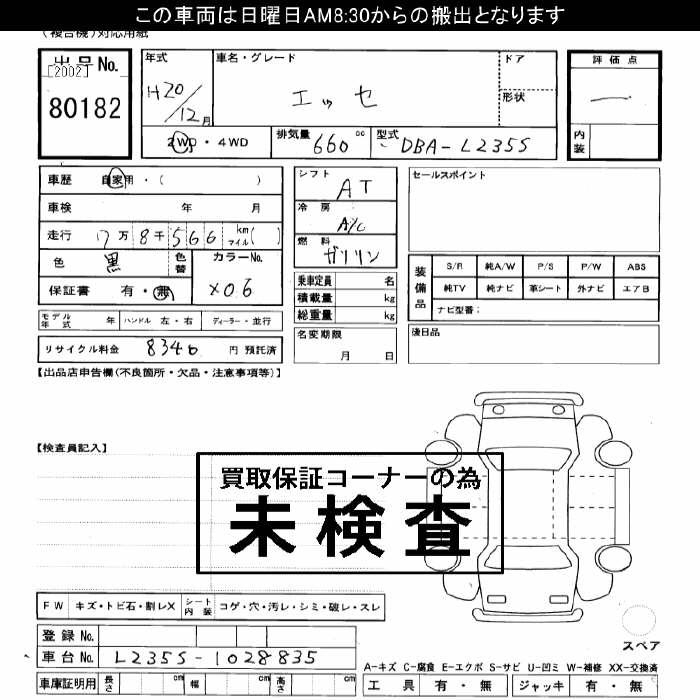 この車両は日曜日AM8:30からの搬出となります
(複合機)対応用紙
出品No.
[2002]
80182
年式
H20/12月
車名・グレード
エッセ
ドア
形状
評価点
―
内装
2WD・4WD
排気量 660 cc
型式 DBA-L235S
車歴 自家用・( )
車検 年 月
走行 7万8千566 km マイル( )
色 黒 色替
カラーNo. X06
保証書 有・無
モデル年式 年 ハンドル 左・右 ディーラー・並行
リサイクル料金 8340 円 預託済
シフト AT
冷房 A/C
燃料 ガソリン
乗車定員 名
積載量 kg
総重量 kg
名変期限
月 日
セールスポイント
装備品
S/R 純A/W P/S P/W ABS
純TV 純ナビ 革シート 外ナビ エアB
ナビ型番:
後日品
【出品店申告欄(不良箇所・欠品・注意事項等)】
【検査員記入】
買取保証コーナーの為
未検査
FW キズ・トビ石・割レX シート内装 コゲ・穴・汚レ・シミ・破レ・スレ
登録No.
車台No. L235S-1028835
車庫証明用 長さ cm 幅 cm 高さ cm
スペア
A-キズ C-腐食 E-エクボ S-サビ U-凹ミ W-補修 XX-交換済
工具 有・無 ジャッキ 有・無